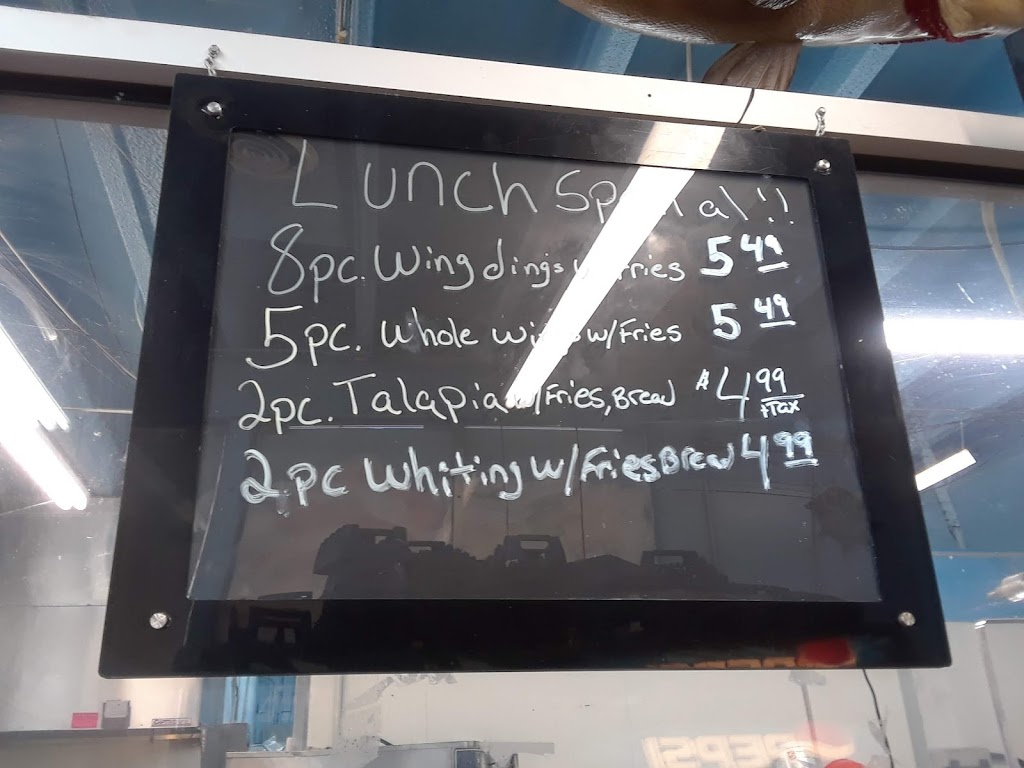 Lunch Special!!
8pc. Wing dings w/Fries 5 49
5pc. Whole Wings w/Fries 5 49
2pc. Talapia w/Fries, Bread $4 99 +Tax
2pc Whiting w/Fries Bread 4 99